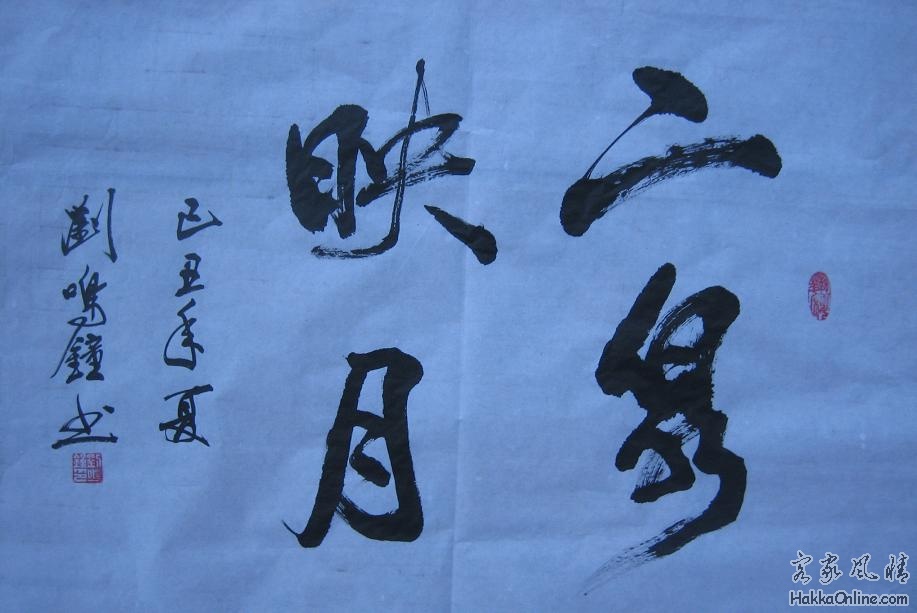 二泉
映月
己丑年夏
劉鳴鐘书
客家风情
HakkaOnline.com